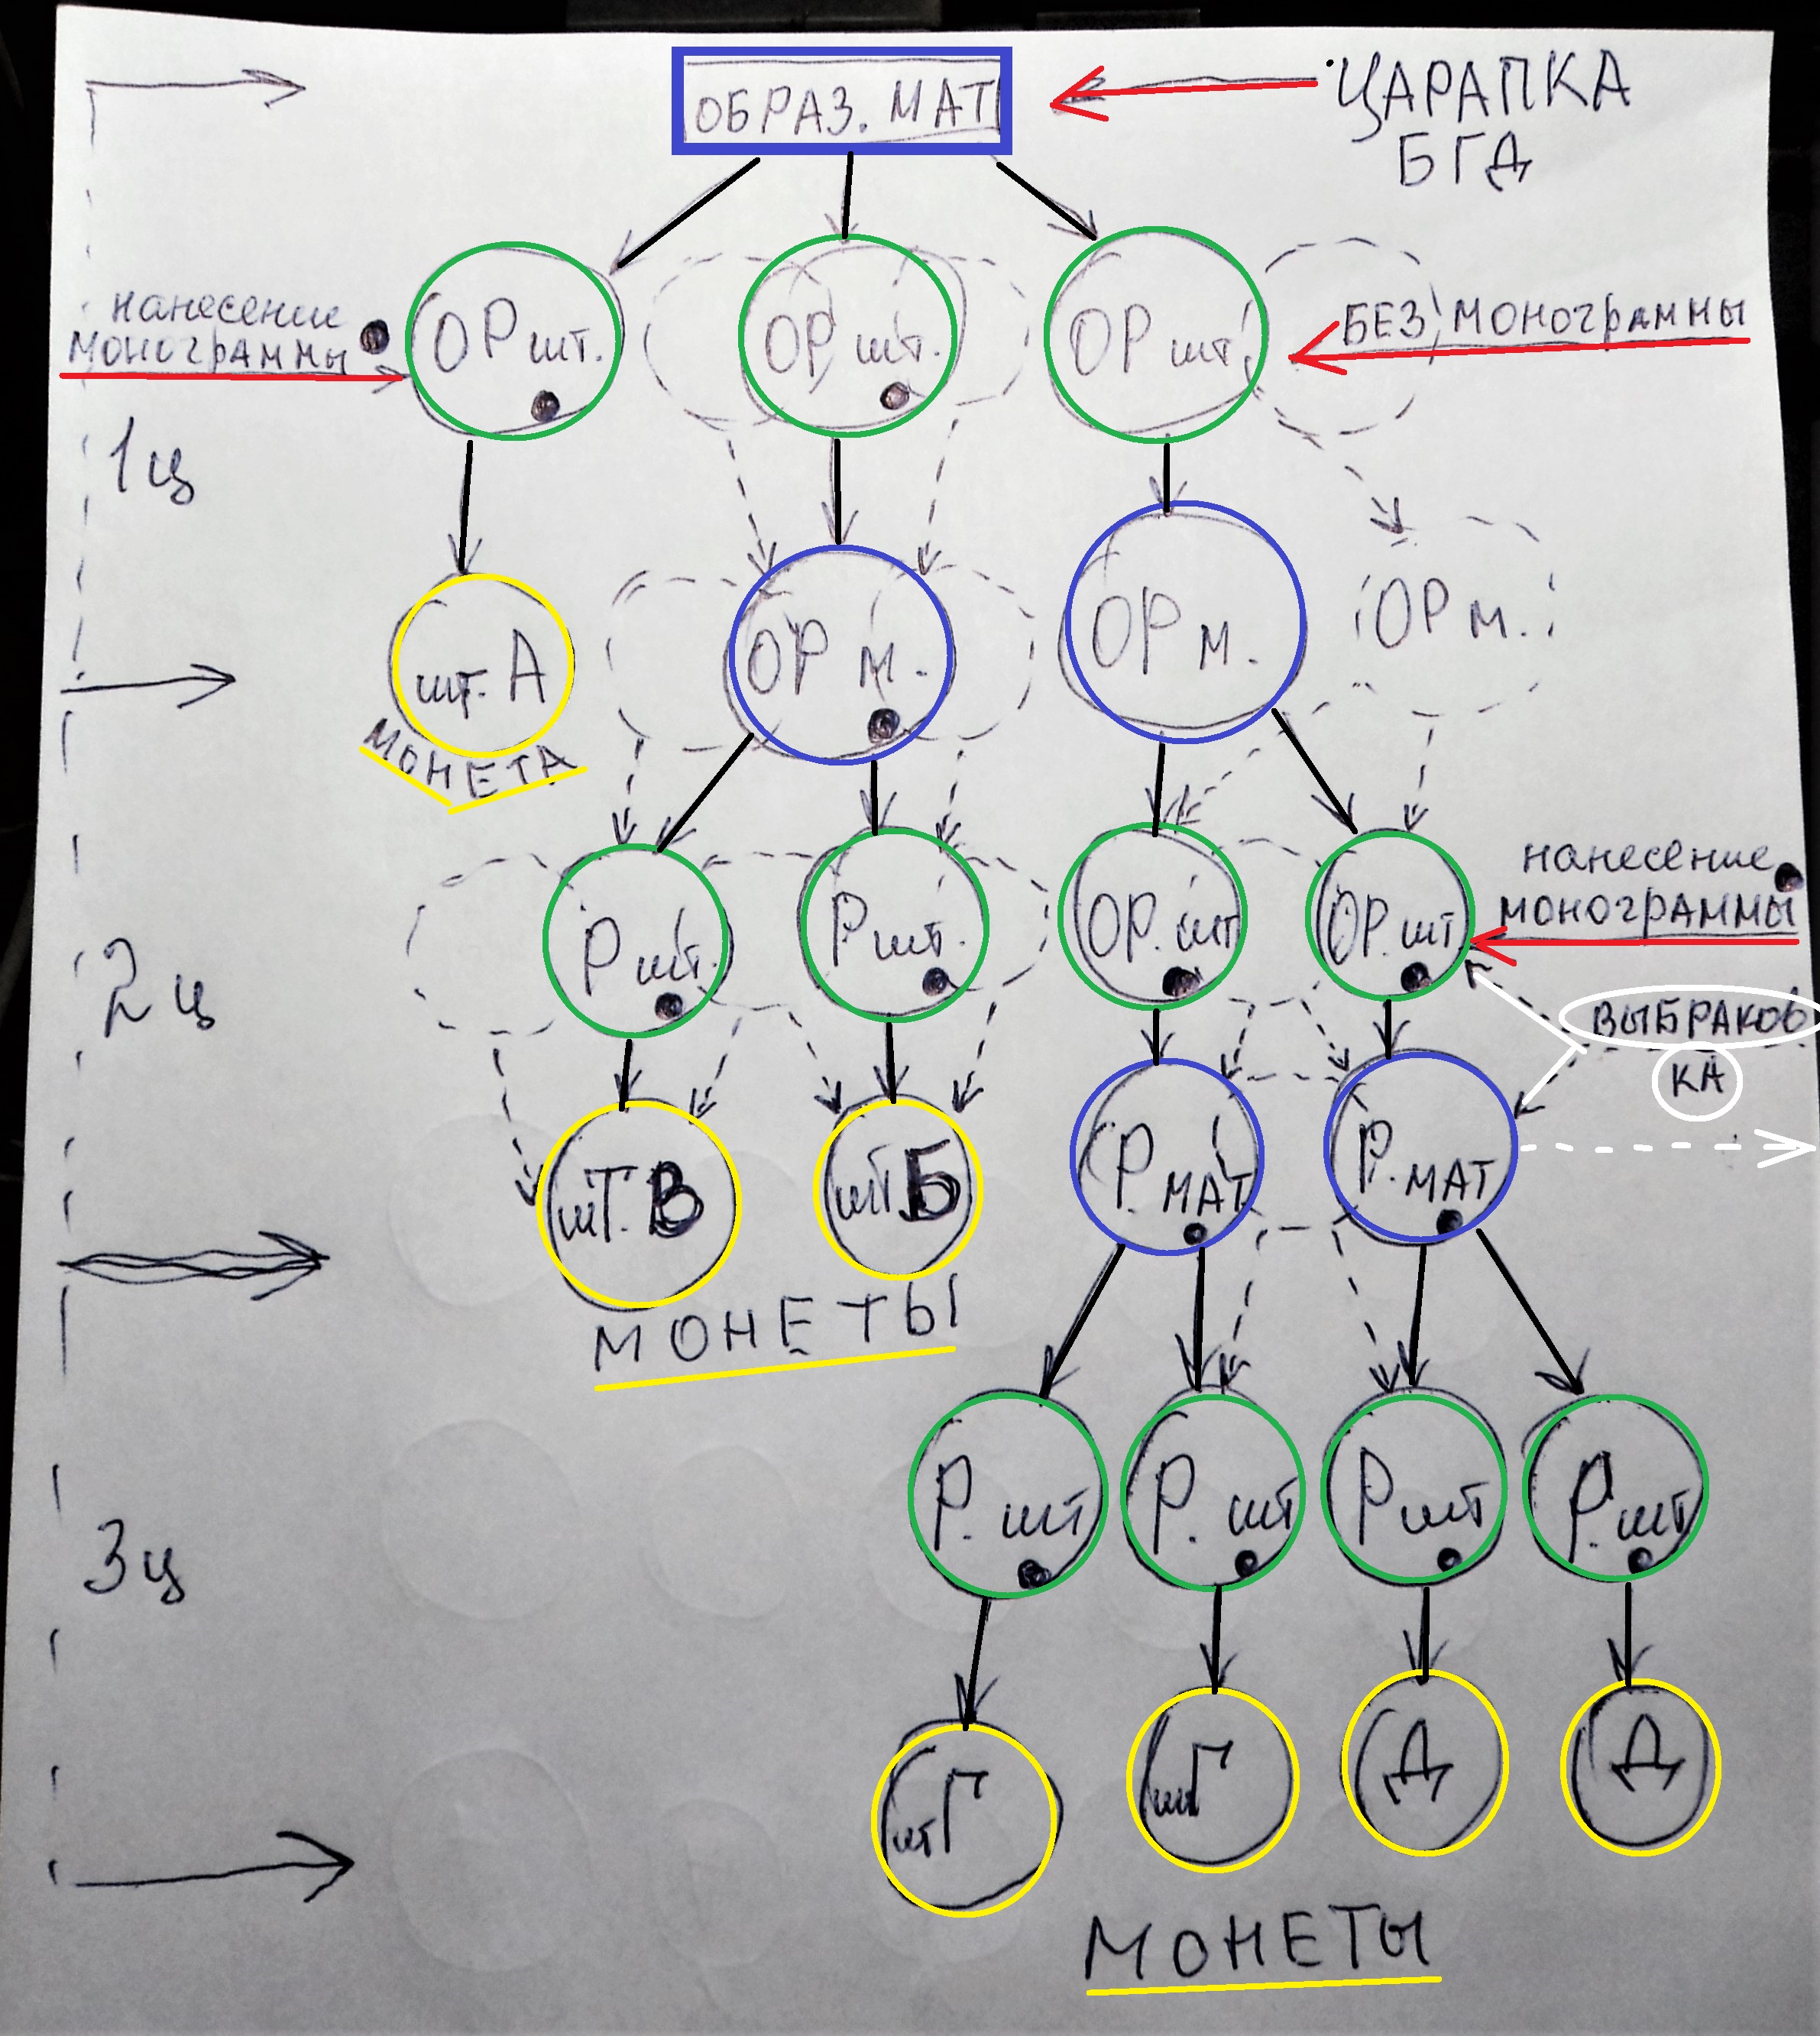 ОБРАЗ. МАТ
ЦАРАПКА
БГД
нанесение
монограммы
ОР шт.
ОР шт.
ОР шт.
БЕЗ монограммы
1ц
шт. А
МОНЕТА
ОР м.
ОР м.
ОР м.
2ц
Р шт.
Р шт.
ОР. шт
ОР. шт
нанесение
монограммы
ВЫБРАКОВ
КА
шт. В
шт Б
Р. МАТ
Р. МАТ
МОНЕТЫ
3ц
Р. шт
Р. шт
Р шт
Р. шт
шт Г
шт Г
Д
Д
МОНЕТЫ